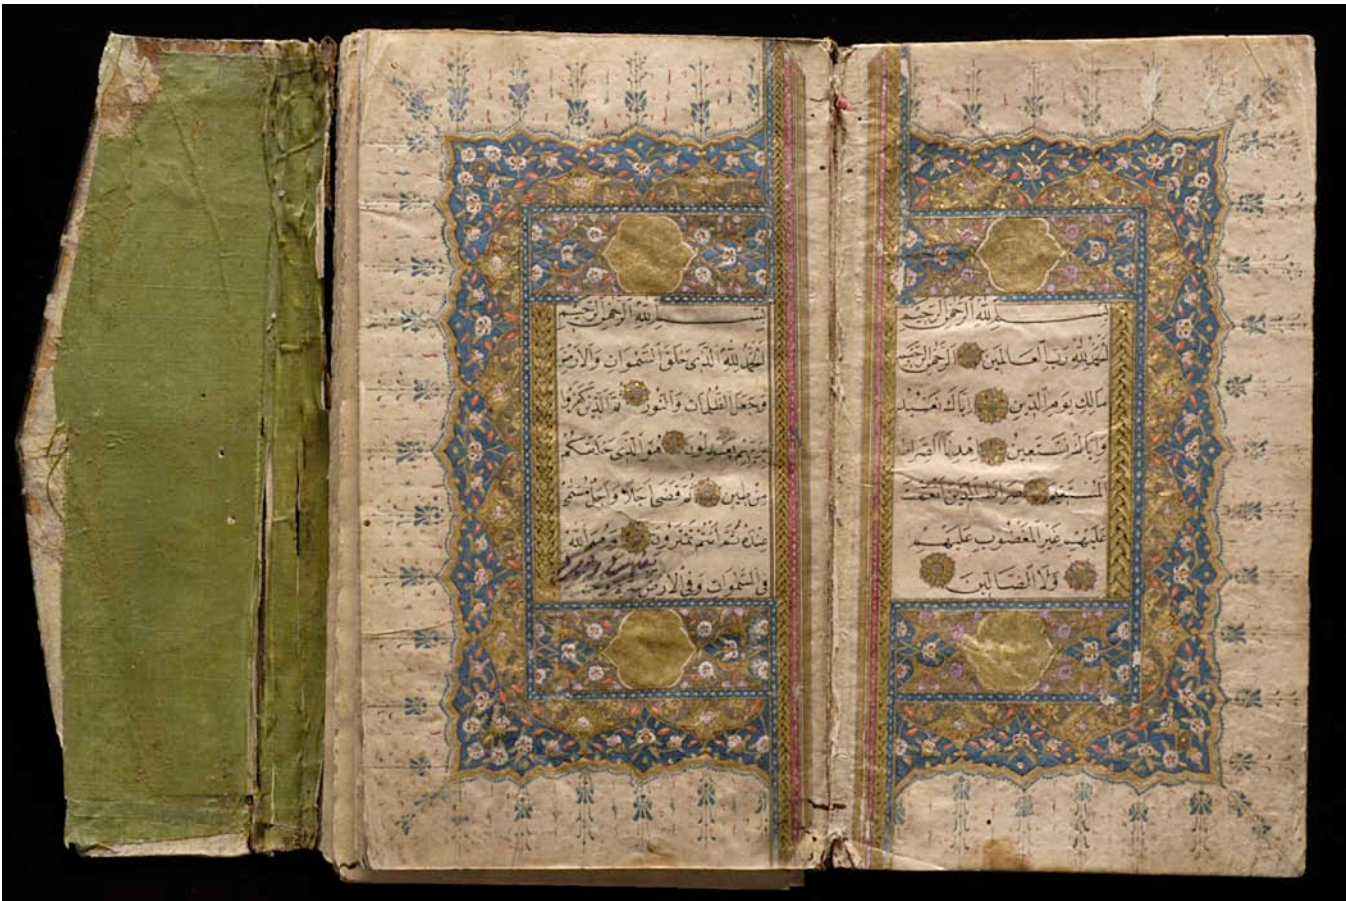 بسم الله الرحمن الرحيم
الحمد لله رب العالمين الرحمن الرحيم
مالك يوم الدين اياك نعبد
واياك نستعين اهدنا الصراط
المستقيم صراط الذين انعمت
عليهم غير المغضوب عليهم
ولا الضالين
بسم الله الرحمن الرحيم
الحمد لله الذى خلق السموات والارض
وجعل الظلمات والنور ثم الذين كفروا
بربهم يعدلون هو الذى خلقكم
من طين ثم قضى اجلا واجل مسمى
عنده ثم انتم تمترون وهو الله
فى السموات وفى الارض